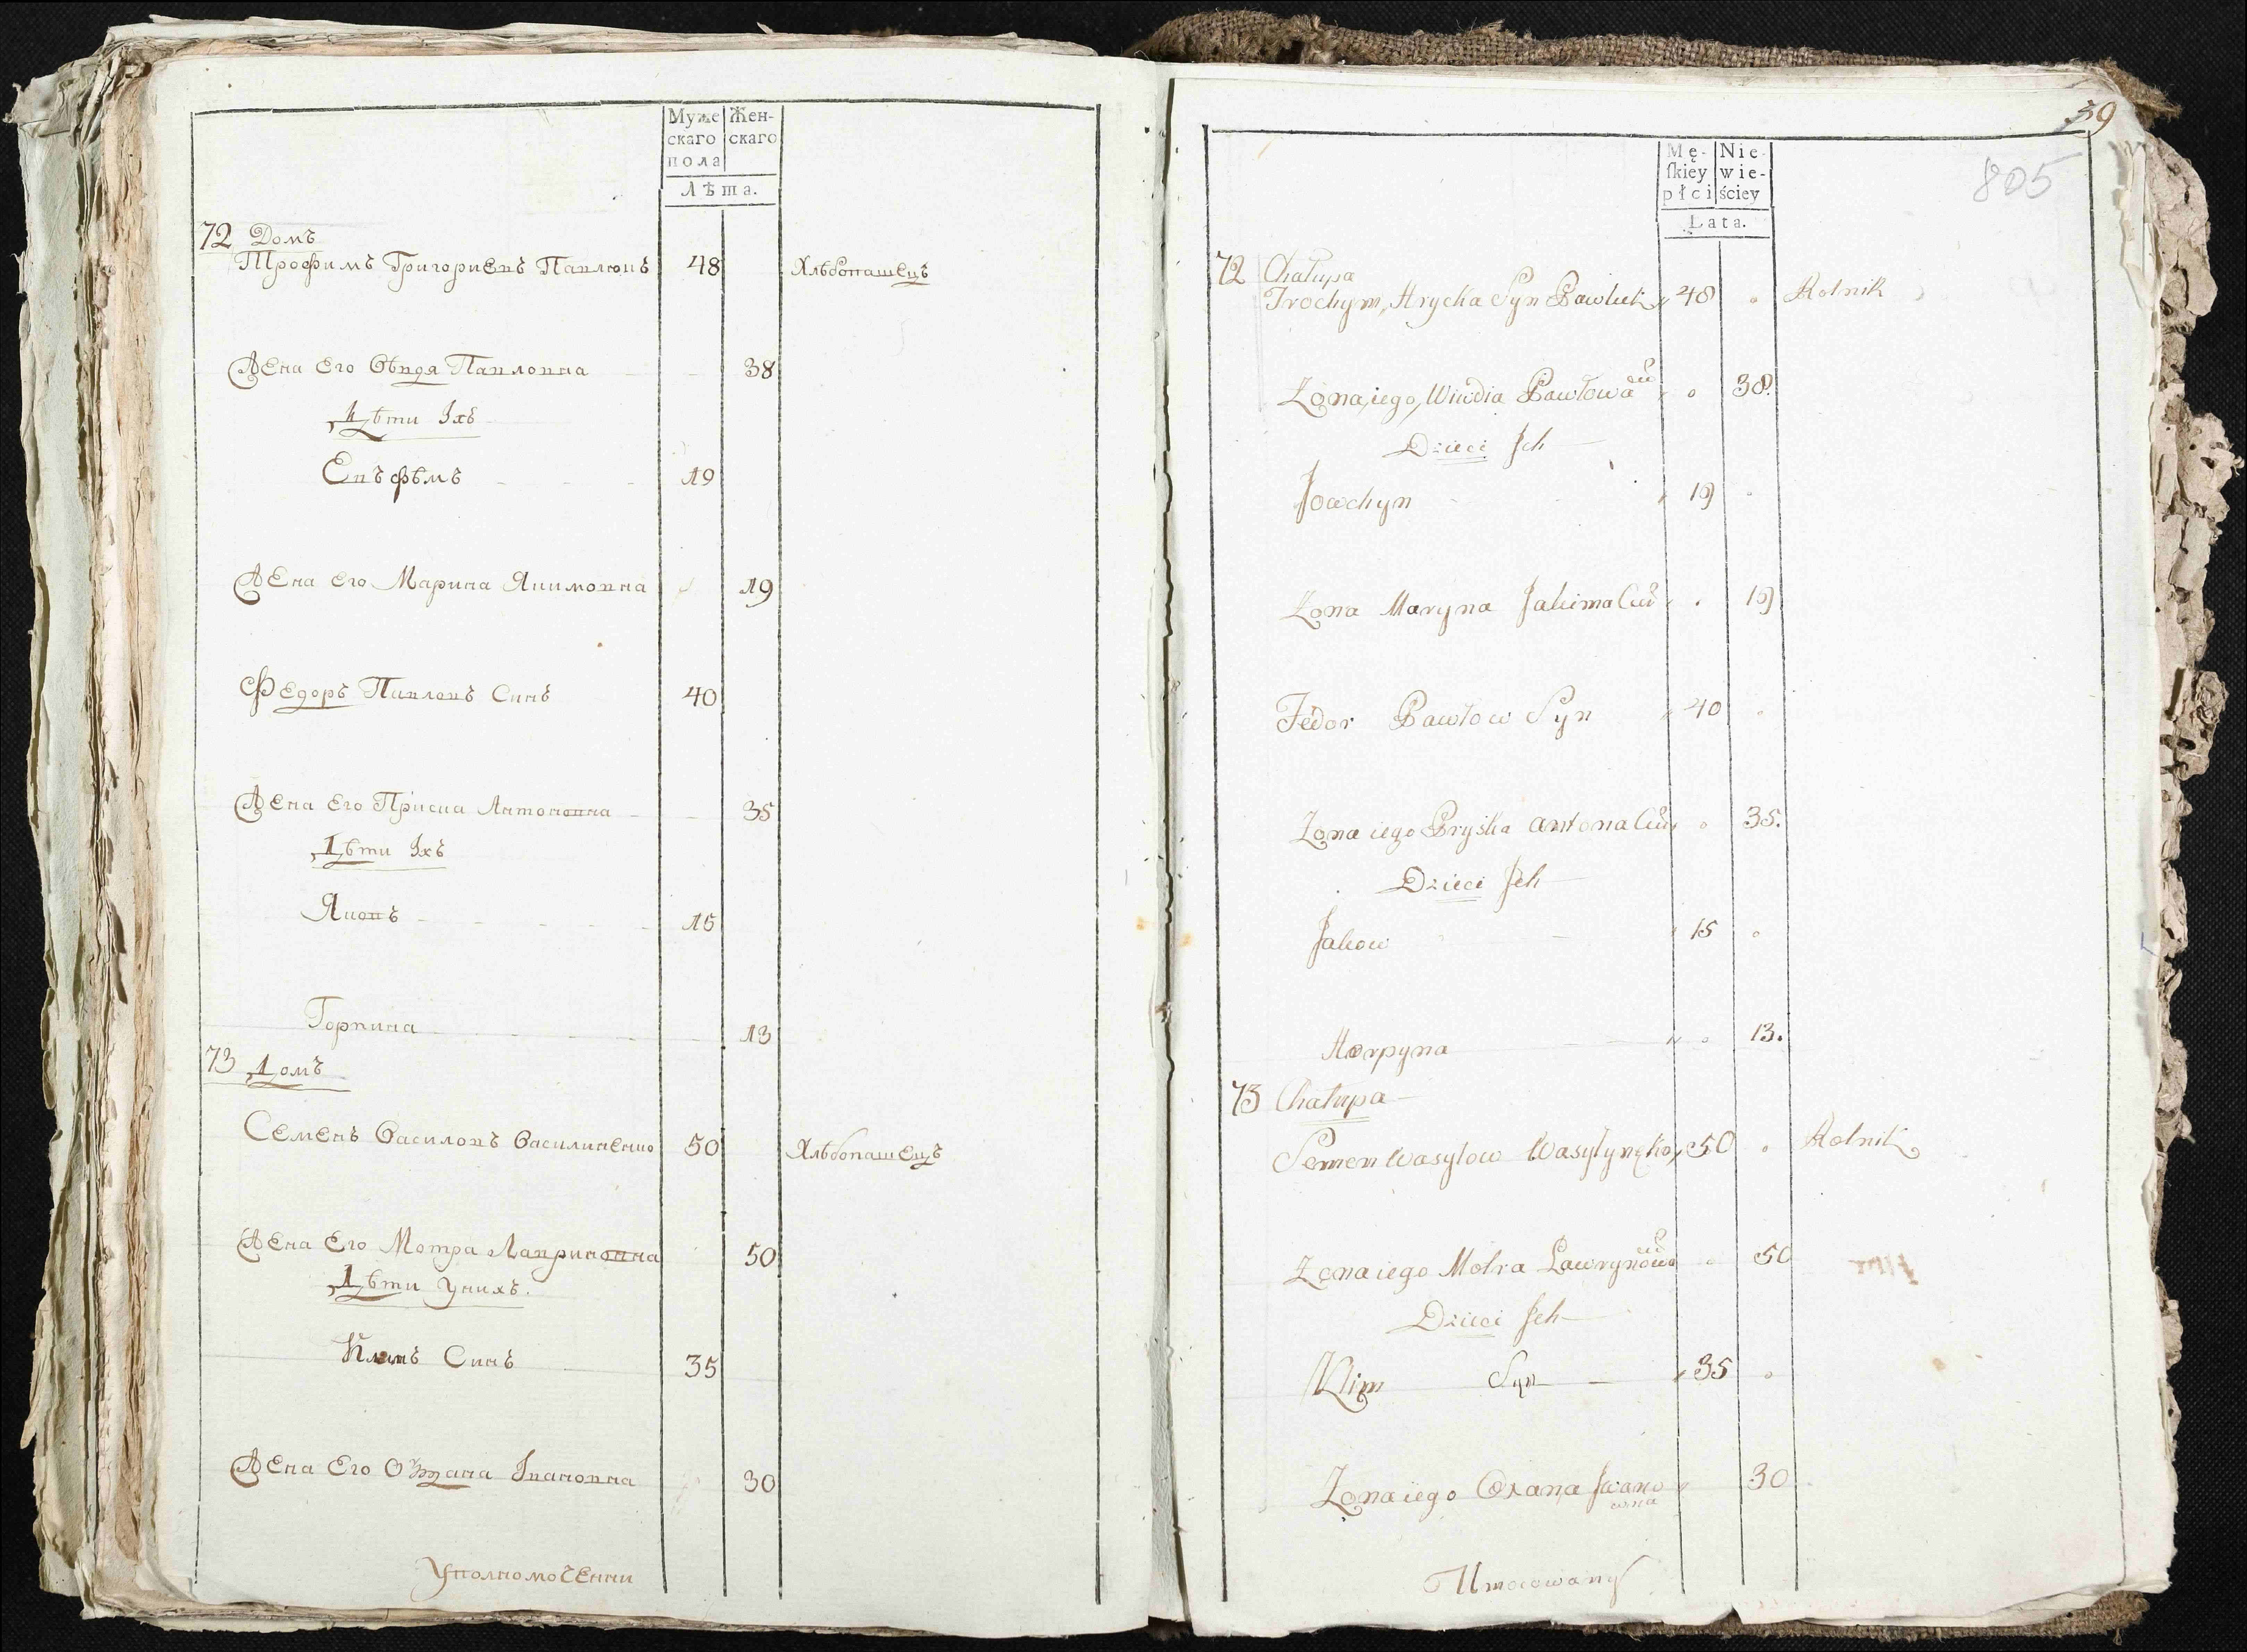 Муже
скаго
пола
Жен-
скаго
Лѣта.
72 Домъ
Трофимъ Григориевъ Павлюкъ 48 Хлѣбопашецъ
Жена Его Овѣдя Павловна 38
Дѣти Іхъ
Евъфѣмъ 19
Жена Его Марина Якимовна 19
Федоръ Павловъ Синъ 40
Жена Его Приска Антоновна 35
Дѣти Іхъ
Яковъ 15
Горпина 13
73 Домъ
Семенъ Василовъ Василиненко 50 Хлѣбопашецъ
Жена Его Мотра Лавриновна 50
Дѣти Унихъ.
Климъ Синъ 35
Жена Его Оѯана Івановна 30
Уполномоченни
39
805
Mę-
ſkiey
płci
Nie-
wie-
ściey
Lata.
72 Chałupa
Trochym, Hrycka Syn Pawluk 48 Rolnik
Żona, iego, Wiwdia Pawłowa 38.
Dzieci Ich
Jowchym 19
Żona Maryna Jakima Cur 19
Fedor Pawłow Syn 40
Żona iego Pryśka Antona Cur 35.
Dzieci Ich
Jakow 15
Horpyna 13.
73 Chałupa
Semen Wasylow Wasylynęko 50 Rolnik
Żona iego Motra Lawrynowa 50
Dzieci Ich
Klim Syn 35
Żona iego Oxana Iwano
wna 30
Umocowany